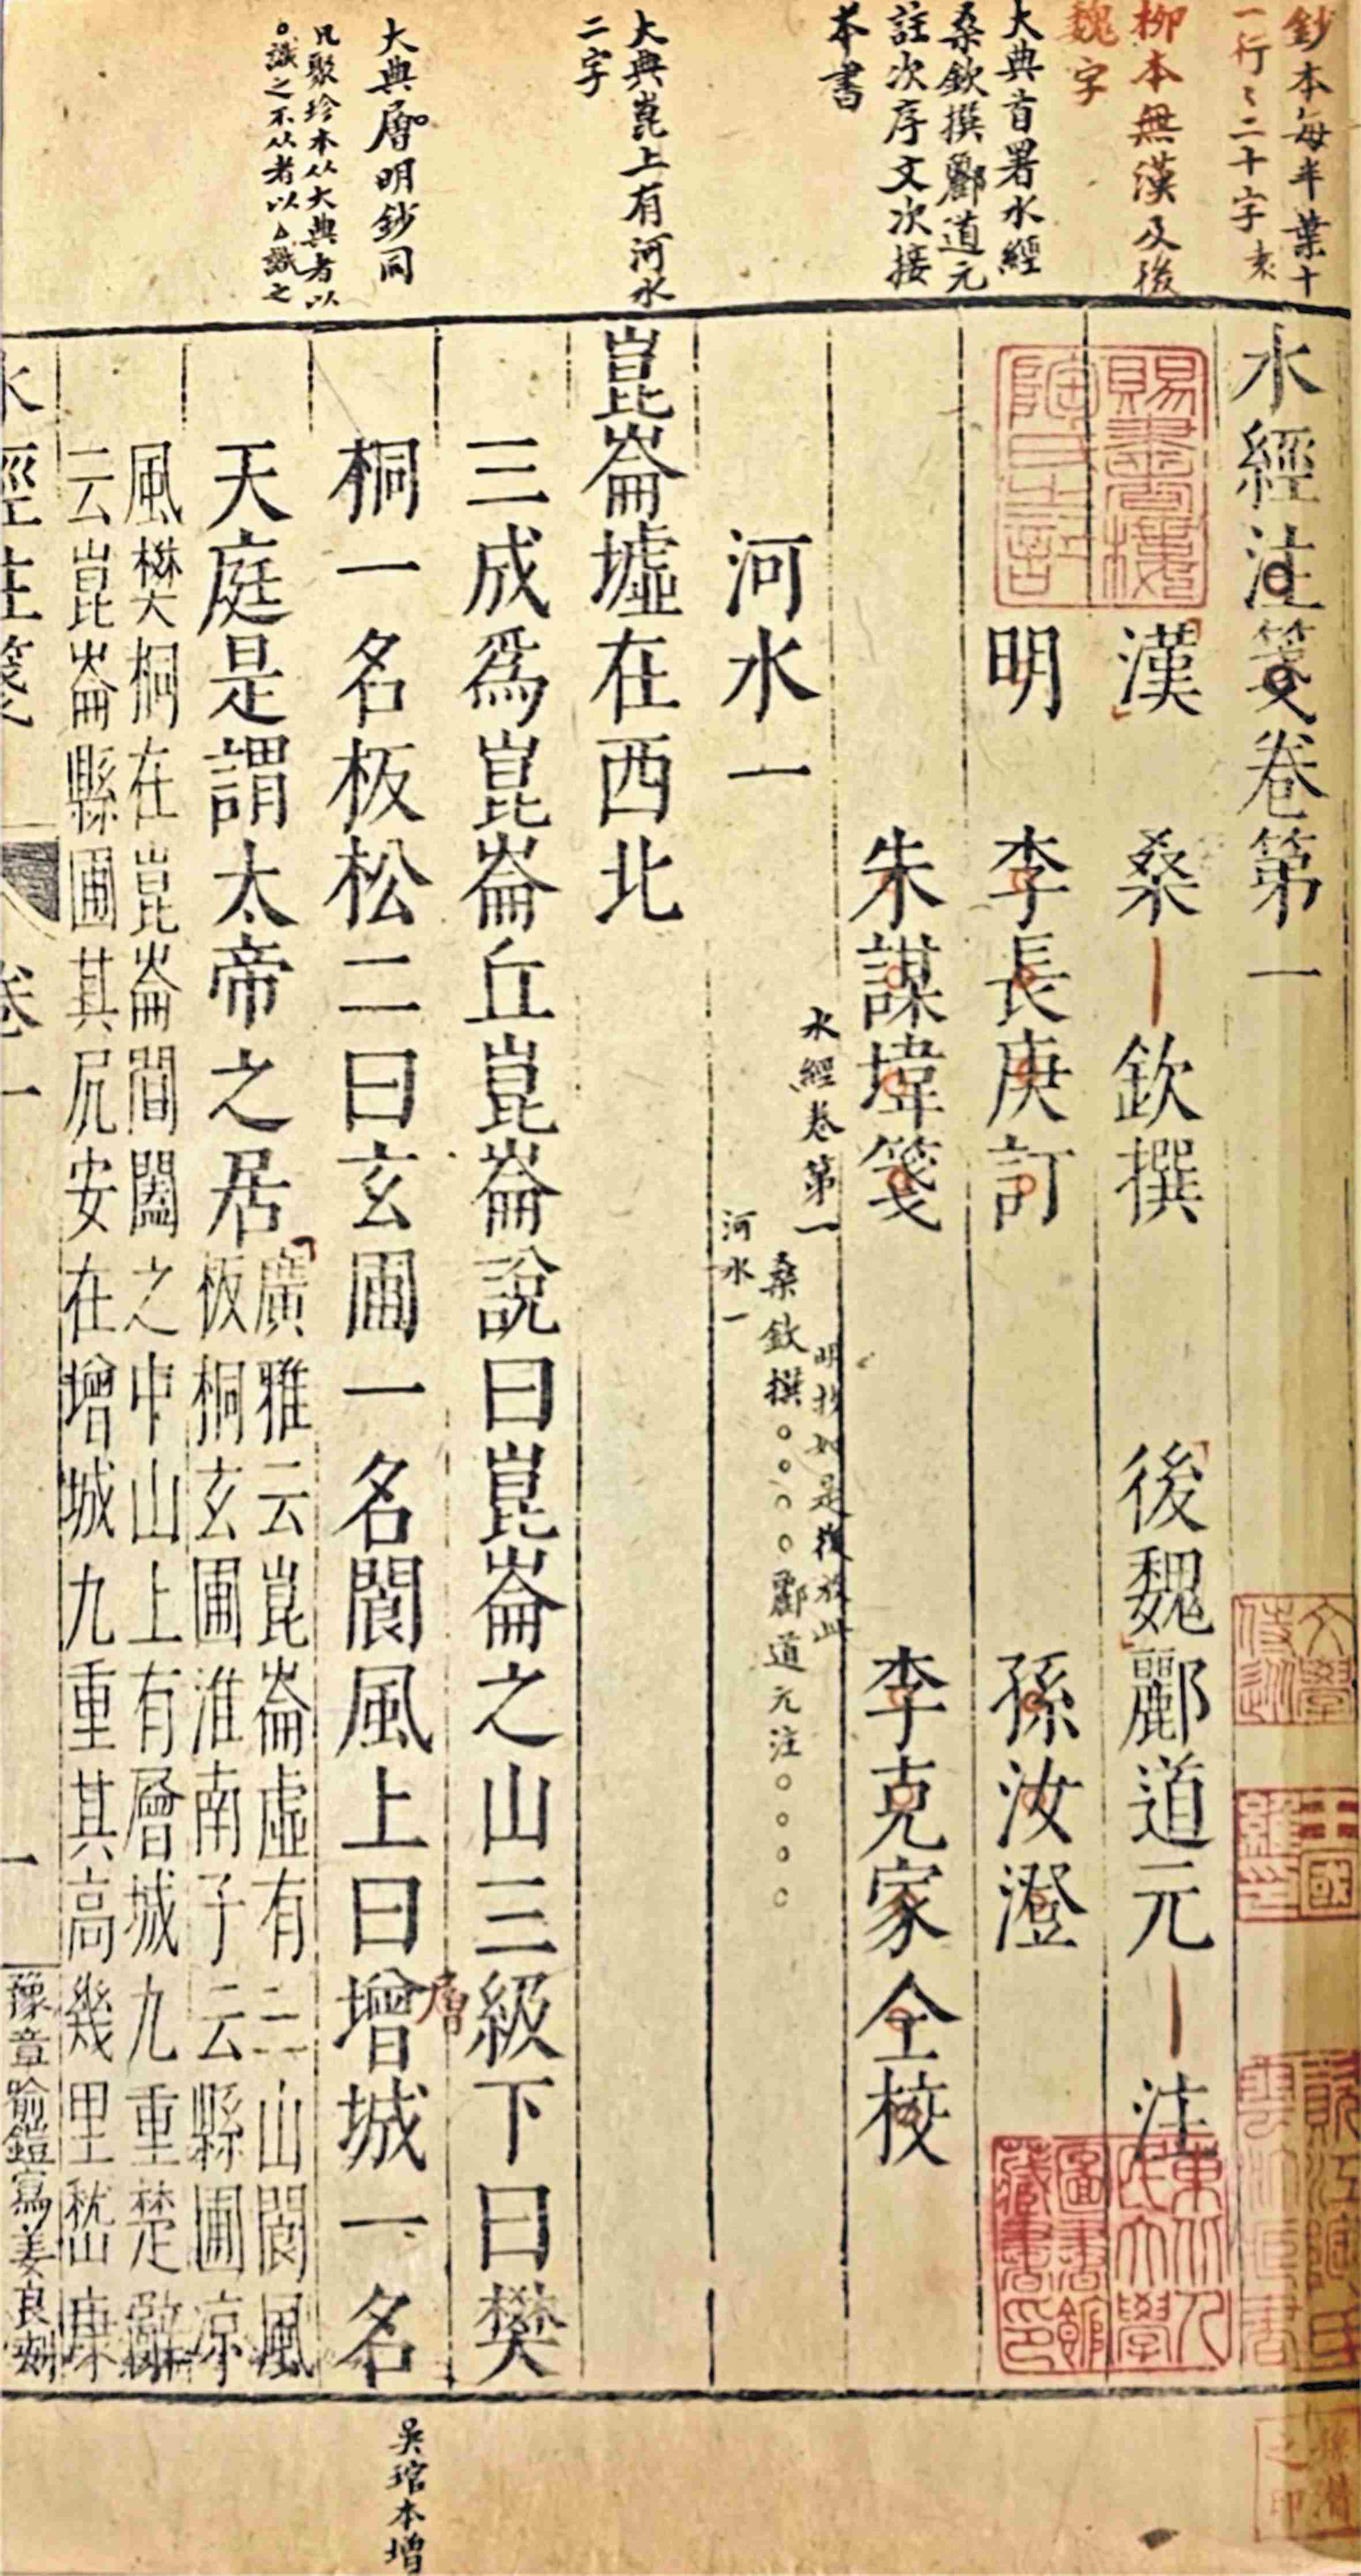 鈔本每半葉十
一行行二十字
柳本無漢及後
魏字
大典首署水經
桑欽撰酈道元
註次序文次接
本書
大典崑上有河水
二字
大典層明鈔同
凡聚珍本从大典者以
○識之不从者以△識之
水經注箋卷第一
漢 桑欽撰 後魏酈道元注
賜書樓
明 李長庚訂 孫汝澄
朱謀㙔箋 李克家仝校
水經卷第一
桑欽撰○○○○酈道元注○○○○
明抄如是後放此
河水一
河水一
崑崙墟在西北
三成爲崑崙丘崑崙說曰崑崙之山三級下曰樊
桐一名板松二曰玄圃一名閬風上曰增城一名
層
天庭是謂太帝之居
廣雅云崑崙虛有三山閬風
板桐玄圃淮南子云縣圃涼
風樊桐在崑崙閶闔之中山上有層城九重楚辭
云崑崙縣圃其凥安在增城九重其高幾里嵇康
水經注箋 卷一 一
豫章喻鎧寫姜良刻
吳琯本增
東北人
民大學
圖書館
藏書印